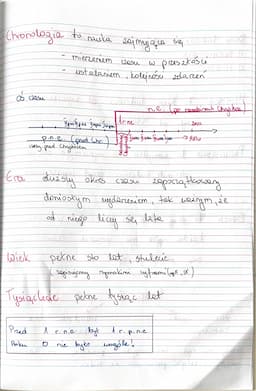 Chronologia to nauka zajmująca się
- mierzeniem czasu w przeszłości
- ustalaniem kolejności zdarzeń
oś czasu
n.e. (po narodzinach Chrystusa)
1 r n.e
p.n.e. (przed Chr.
Era dłuższy okres czasu zapoczątkowany
doniosłym wydarzeniem, tak ważnym, że
od niego liczy się lata
Wiek pełne sto lat, stulecie
(zapisujemy rzymskimi cyframi
Tysiąclecie pełne tysiąc lat
Przed 1 r. n.e był 1 r. p.n.e
Roku 0 nie było wogóle!